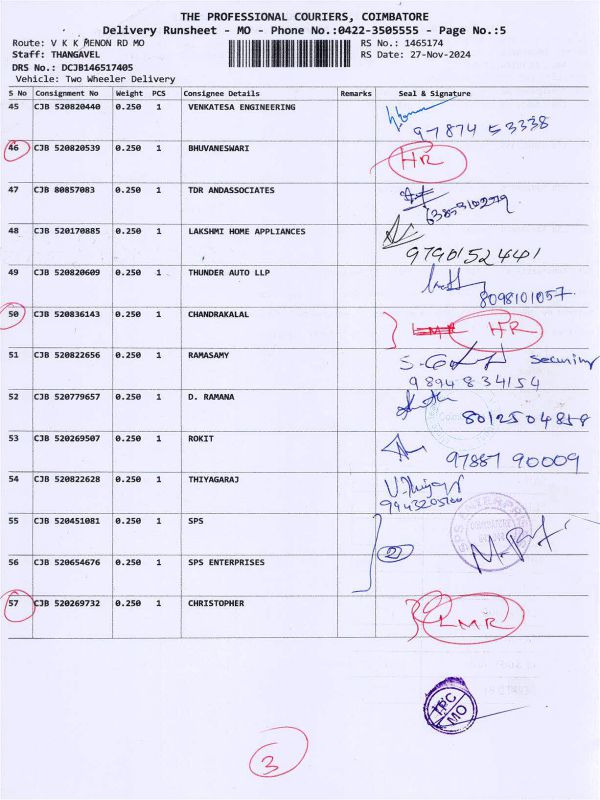 THE PROFESSIONAL COURIERS, COIMBATORE
Delivery Runsheet - MO - Phone No.:0422-3505555 - Page No.:5
Route: V K K MENON RD MO RS No.: 1465174
Staff: THANGAVEL RS Date: 27-Nov-2024
DRS No.: DCJB146517405
Vehicle: Two Wheeler Delivery
S No Consignment No Weight PCS Consignee Details Remarks Seal & Signature
45 CJB 520820440 0.250 1 VENKATESA ENGINEERING
97874 53338
46 CJB 520820539 0.250 1 BHUVANESWARI
HR
47 CJB 80857083 0.250 1 TDR ANDASSOCIATES
48 CJB 520170885 0.250 1 LAKSHMI HOME APPLIANCES
9790152441
49 CJB 520820609 0.250 1 THUNDER AUTO LLP
8098101057
50 CJB 520836143 0.250 1 CHANDRAKALAL
HR
51 CJB 520822656 0.250 1 RAMASAMY
9894834154
52 CJB 520779657 0.250 1 D. RAMANA
8012504858
53 CJB 520269507 0.250 1 ROKIT
97887 90009
54 CJB 520822628 0.250 1 THIYAGARAJ
55 CJB 520451081 0.250 1 SPS
2
56 CJB 520654676 0.250 1 SPS ENTERPRISES
57 CJB 520269732 0.250 1 CHRISTOPHER
LMR
TPC
MO
3